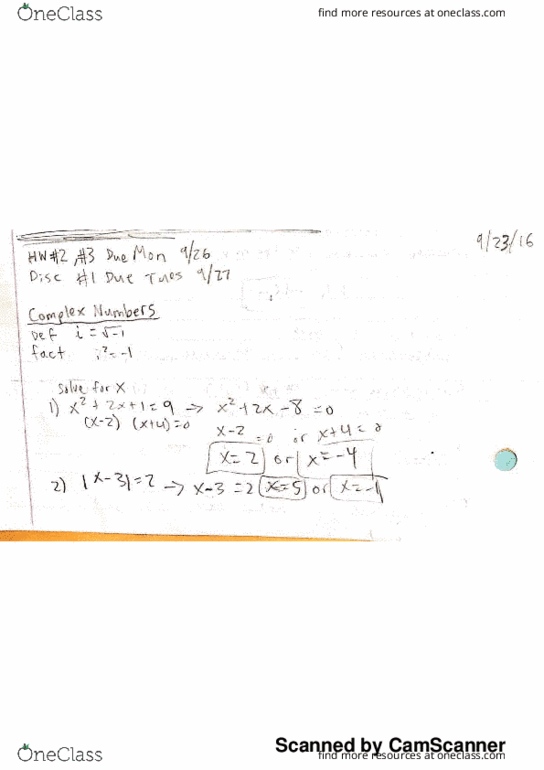 OneClass
find more resources at oneclass.com
9/23/16
HW#2, #3 Due Mon 9/26
Disc #1 Due Tues 9/27
Complex Numbers
Def i = √-1
fact i² = -1
Solve for x
1) x² + 2x + 1 = 9 → x² + 2x - 8 = 0
(x-2) (x+4) = 0 x-2 = 0 or x+4 = 0
x = 2 or x = -4
2) |x-3| = 2 → x-3 = 2 x=5 or x=-1
Scanned by CamScanner
OneClass
find more resources at oneclass.com